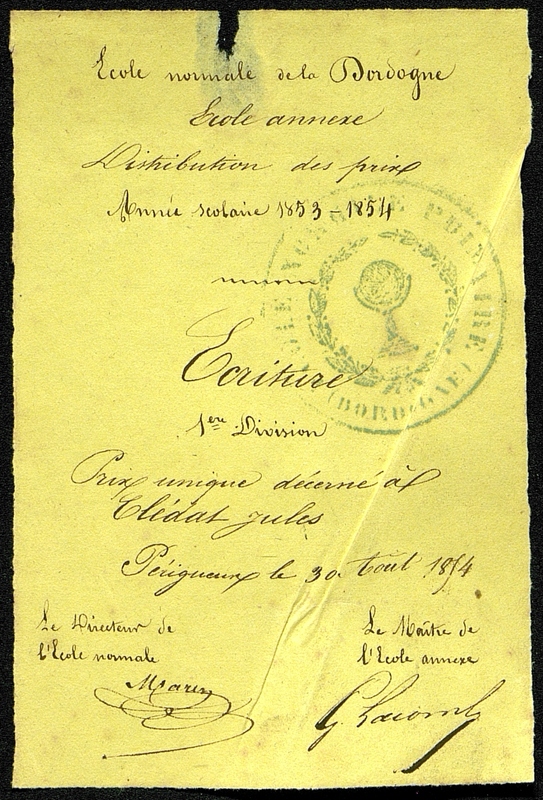 Ecole normale de la Dordogne
Ecole annexe
Distribution des prix
Année scolaire 1853-1854
Ecriture
1ère Division
Prix unique décerné à
Clédat Jules
Périgueux le 30 Août 1854
Le Directeur de
l'Ecole normale
Le Maître de
l'Ecole annexe
G. Lacomb